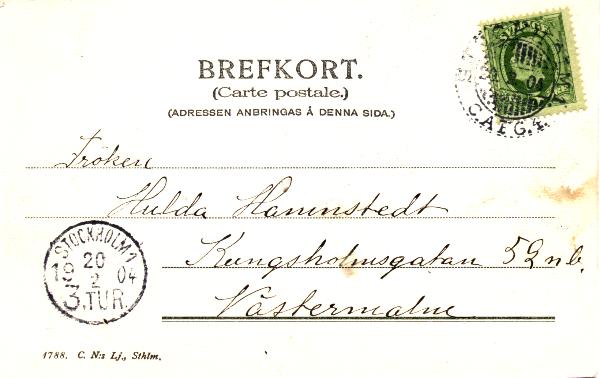 SVERIGE
20 04
C.A.F.G.4.
BREFKORT.
(Carte postale.)
(ADRESSEN ANBRINGAS Å DENNA SIDA.)
Fröken
Hulda Hammstedt
Kungsholmsgatan 52 nb.
Västermalm
STOCKHOLM 1
20
19 2 04
3.TUR.
1788. C. N:s Lj., Sthlm.